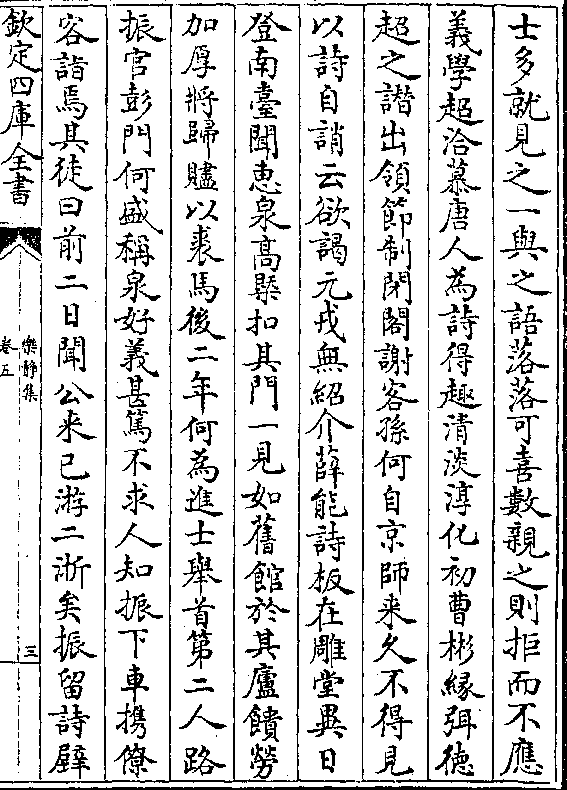 士多就見之一與之語落落可喜數親之則拒而不應
義學超洽慕唐人為詩得趣清淡淳化初曹彬緣弭德
超之譖出領節制閉閣謝客孫何自京師来久不得見
以詩自誚云欲謁元戎無紹介薛能詩板在雕堂異日
登南臺聞惠泉髙槩扣其門一見如舊館於其廬饋勞
加厚將歸贐以裘馬後二年何為進士舉首第二人路
振官彭門何盛稱泉好義甚篤不求人知振下車携僚
客詣焉其徒曰前二日聞公来已游二浙矣振留詩壁
欽定四庫全書
樂静集
卷五
三